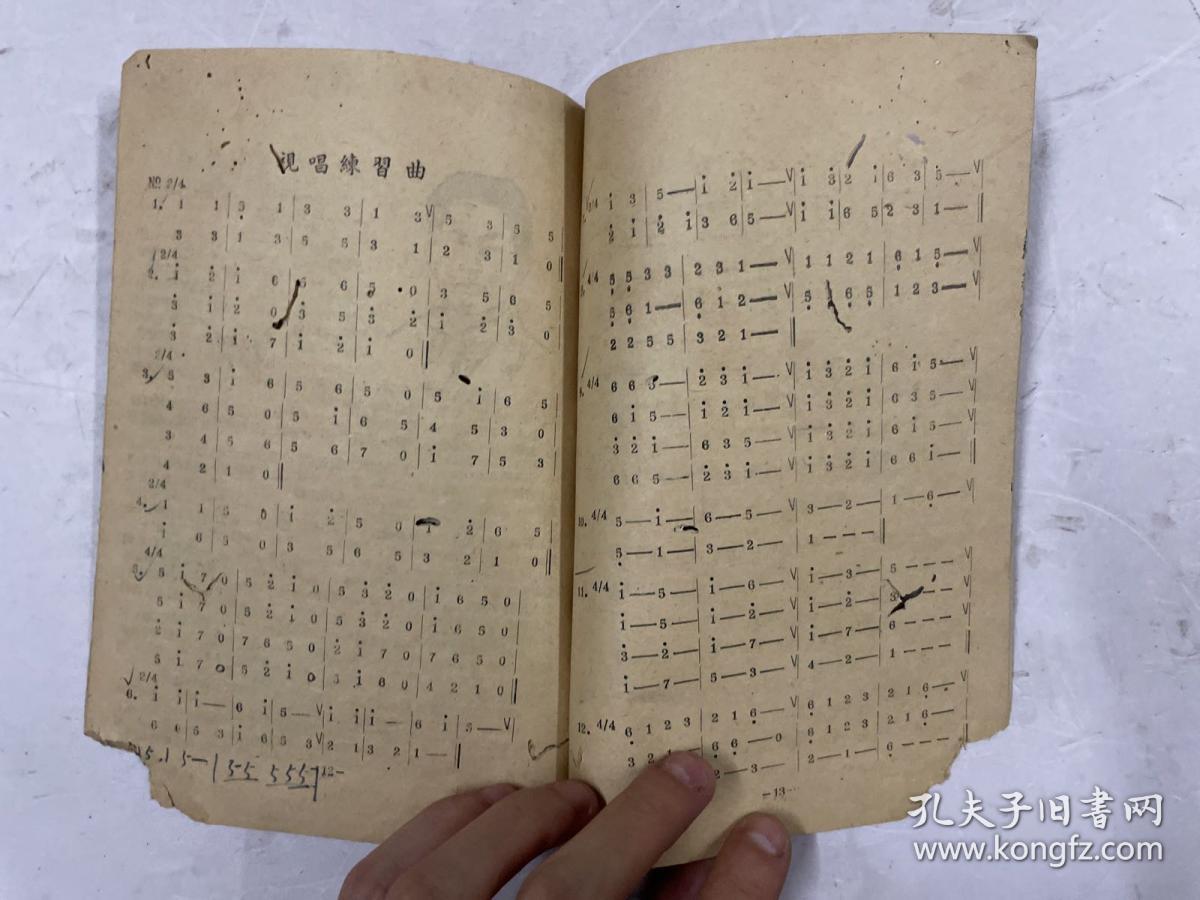 視唱練習曲
№ 2/4
1. 1 1 | 5 1 | 3 3 | 1 3 V| 5 3 | 5 5
3 3 | 1 3 | 5 5 | 3 1 | 2 3 | 1 0 ‖
2/4
2. i̇ 2̇ | i̇ 6 | 5 6 | 5 0 | 3 5 | 6 5
3̇ i̇ | 2̇ 0 | 3̇ 5 | 3̇ 2̇ | i̇ 2̇ | 3̇ 0
3̇ 2̇ | i̇ 7 | i̇ 2̇ | i̇ 0 ‖
2/4
3. 5 3 | i̇ 6 | 5 6 | 5 0 | 5 i̇ | 6 5
4 6 | 5 0 | 5 i̇ | 6 5 | 4 5 | 3 0
3 4 | 5 6 | 5 6 | 7 0 | i̇ 7 | 5 3
4 2 | 1 0 ‖
2/4
4. 1 1 | 5 0 | i̇ 2̇ | 5 0 | i̇ 2̇ | 6 5
i̇ 6 | 5 0 | 3 5 | 6 5 | 3 2 | 1 0 ‖
4/4
5. 5 i̇ 7 0 | 5 2̇ i̇ 0 | 5 3̇ 2̇ 0 | i̇ 6 5 0
5 i̇ 7 0 | 5 2̇ i̇ 0 | 5 3̇ 2̇ 0 | i̇ 6 5 0
2̇ i̇ 7 0 | 7 6 5 0 | 2̇ i̇ 7 0 | 7 6 5 0
5 i̇ 7 0 | 5 2̇ i̇ 0 | 5 i̇ 6 0 | 4 2 1 0 ‖
2/4
6. i̇ i̇ | i̇ — | 6 i̇ | 5 — V| i̇ i̇ | i̇ — | 6 i̇ | 5 — V|
6 6 | 5 3 | i̇ 6 | 5 3 V| 2 1 | 3 2 | 1 — ‖
5. 1 5 — | 55 555 |
12-
2/4 i̇ 3 | 5 — | i̇ 2̇ | i̇ — V| i̇ 3̇ | 2̇ i̇ | 6 3 | 5 — V|
2̇ i̇ | 2̇ i̇ | 3 6 | 5 — V| i̇ i̇ | 6 5 | 2 3 | 1 — ‖
4/4 5̣ 5̣ 3 3 | 2 3 1 — V| 1 1 2 1 | 6̣ 1 5̣ — V|
5̣ 6̣ 1 — | 6̣ 1 2 — V| 5̣ 6̣ 5̣ | 1 2 3 — V|
2 2 5 5 | 3 2 1 — ‖
9. 4/4 6 6 5 — | 2̇ 3̇ i̇ — V| i̇ 3̇ 2̇ i̇ | 6 i̇ 5 — V|
6 i̇ 5 — | i̇ 2̇ i̇ — V| i̇ 3̇ 2̇ i̇ | 6 3 5 — V|
3̇ 2̇ i̇ — | 6 3 5 — V| i̇ 3̇ 2̇ i̇ | 6 i̇ 5 — V|
6 6 5 — | 2̇ 3̇ i̇ — V| i̇ 3̇ 2̇ i̇ | 6 6 i̇ — V|
10. 4/4 5 — i̇ — | 6 — 5 — V| 3 — 2 — | 1 — 6̣ — V|
5 — 1 — | 3 — 2 — | 1 - - - ‖
11. 4/4 i̇ — 5 — | i̇ — 6 — V| i̇ — 3 — | 5 - - - V|
i̇ — 5 — | i̇ — 2̇ — V| i̇ — 2̇ — | 3̇ - - - V|
3̇ — 2̇ — | i̇ — 7 — V| i̇ — 7 — | 6 - - - V|
i̇ — 7 — | 5 — 3 — V| 4 — 2 — | 1 - - - ‖
12. 4/4 6̣ 1 2 3 | 2 1 6̣ — V| 6̣ 1 2 3 | 2 1 6̣ — V|
6̣ 6̣ — 0 | 6̣ 1 2 3 | 2 1 6̣ — V|
2 — 3 — V| 2 — 1 — | 6̣ - - - ‖
-13-
孔夫子旧书网
www.kongfz.com